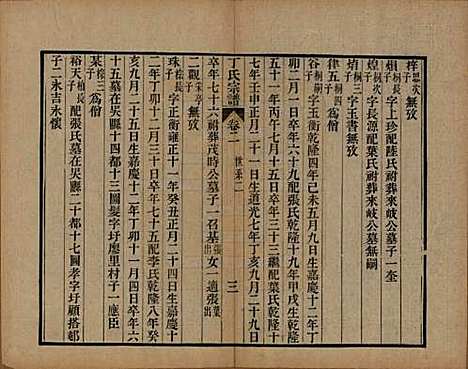 梓 思次子 無攷
烺 桐次子 字上珍配陸氏祔葬來岐公墓子一奎
煌 桐次子 字長源配葉氏祔葬來岐公墓無嗣
焴 桐子 字玉書無攷
律五 桐四子 爲僧
谷 桐嗣子 字玉衡乾隆四年己未五月九日生嘉慶十二年丁
卯二月一日卒年六十九配張氏乾隆十九年甲戌生乾隆
五十一年丙午七月十五日卒年三十三繼配葉氏乾隆三十
七年壬申正月二十一日生道光七年丁亥九月二十九日
丁氏宗譜 卷二 世系二 三
卒年七十六祔葬茂時公墓子一召基 張出 女一適張 葉出
二觀 宋子 無攷
珠 棕長子 字正衡雍正十一年癸丑正月二十四日生嘉慶十
二年丁卯十一月四日卒年七十五配李氏乾隆八年癸
亥九月二十六日生嘉慶十二年丁卯十一月四日卒年六
十五墓在吳縣十四都十三圖髮字圩廖里村子一應臣
某 棕三子 爲僧
裕天 柏長子 配張氏墓在吳縣二十都十七圖孝字圩顧搭邨
子二永吉永懷